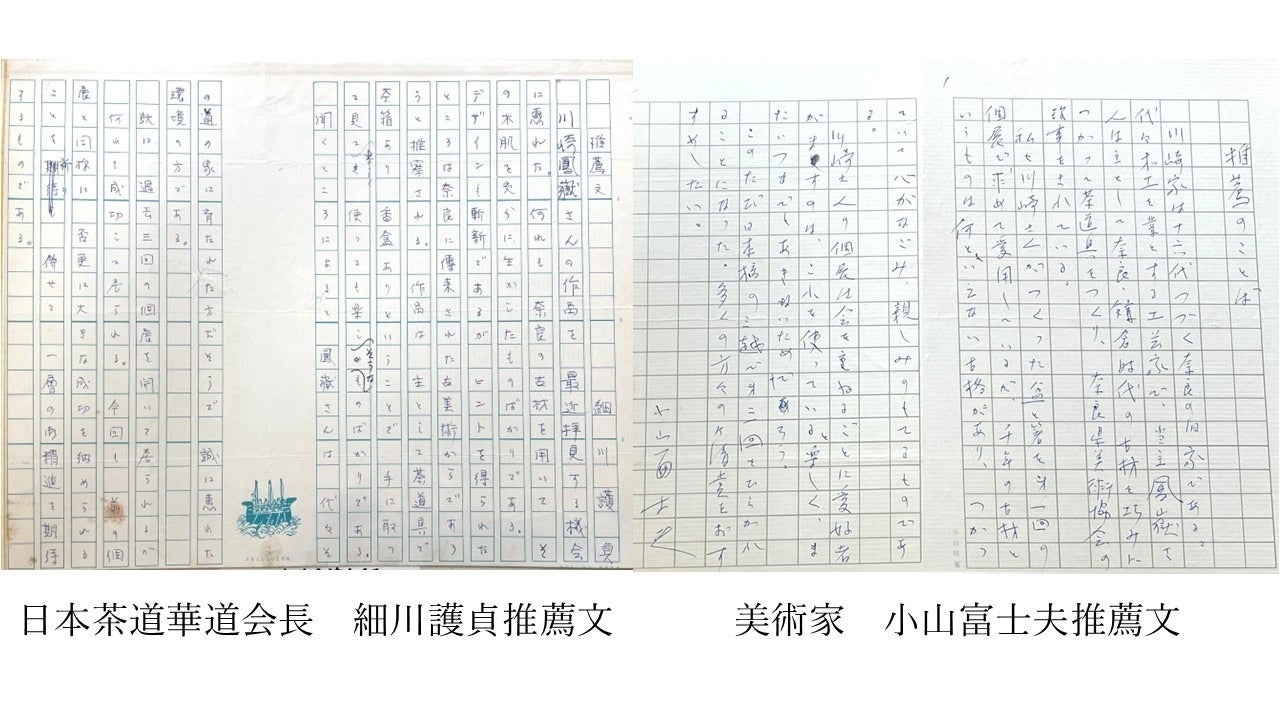 推薦文　細川護貞
川崎鳳嶽さんの作品を最近拝見する機会
に恵れた。何れも奈良の古材を用いてそ
の木肌を充分に生かしたものばかりである。
デザインも斬新であるがヒントを得られた
ところは奈良に傳来された古美術からであろ
うと推察される。作品は主として茶道具で
茶箱あり香盒ありということで手に取っ
て見ても使っても楽しそうなものばかりである。
聞くところによると鳳嶽さんは代々そ
の道の家に育たれた方だそうで誠に恵れた
環境の方である。
既に過去三回の個展を開いて居られるが
何れも成功して居られる。今回も前の個
展と同様に否更に大きな成功を納められる
ことを祈り併せて一層の御精進を期待
するものである。
推薦のことば
川崎家は十六代つづく奈良の旧家である。
代々木工を業とする工芸家で、当主鳳山嶽さ
んは主として奈良、鎌倉時代の古材を巧みに
つかって茶道具をつくり、奈良県美術協会の
理事をされている。
私も川崎さんがつくった盆と箸を第一回の
個展で求めて愛用しているが、千年の古材と
いうものは何といえない古格があり、つかっ
ていて心がなごみ、親しみのもてるものであ
る。
川崎さんの個展は会を重ねるごとに愛好者
がますのは、これを使っていると楽しく、ま
たいつまでもあきないためだろう。
このたび日本橋の三越で第二回をひらかれ
ることになった。多くの方々の御清鑑をおす
すめしたい。
小山冨士夫
日本茶道華道会長　細川護貞推薦文
美術家　小山富士夫推薦文